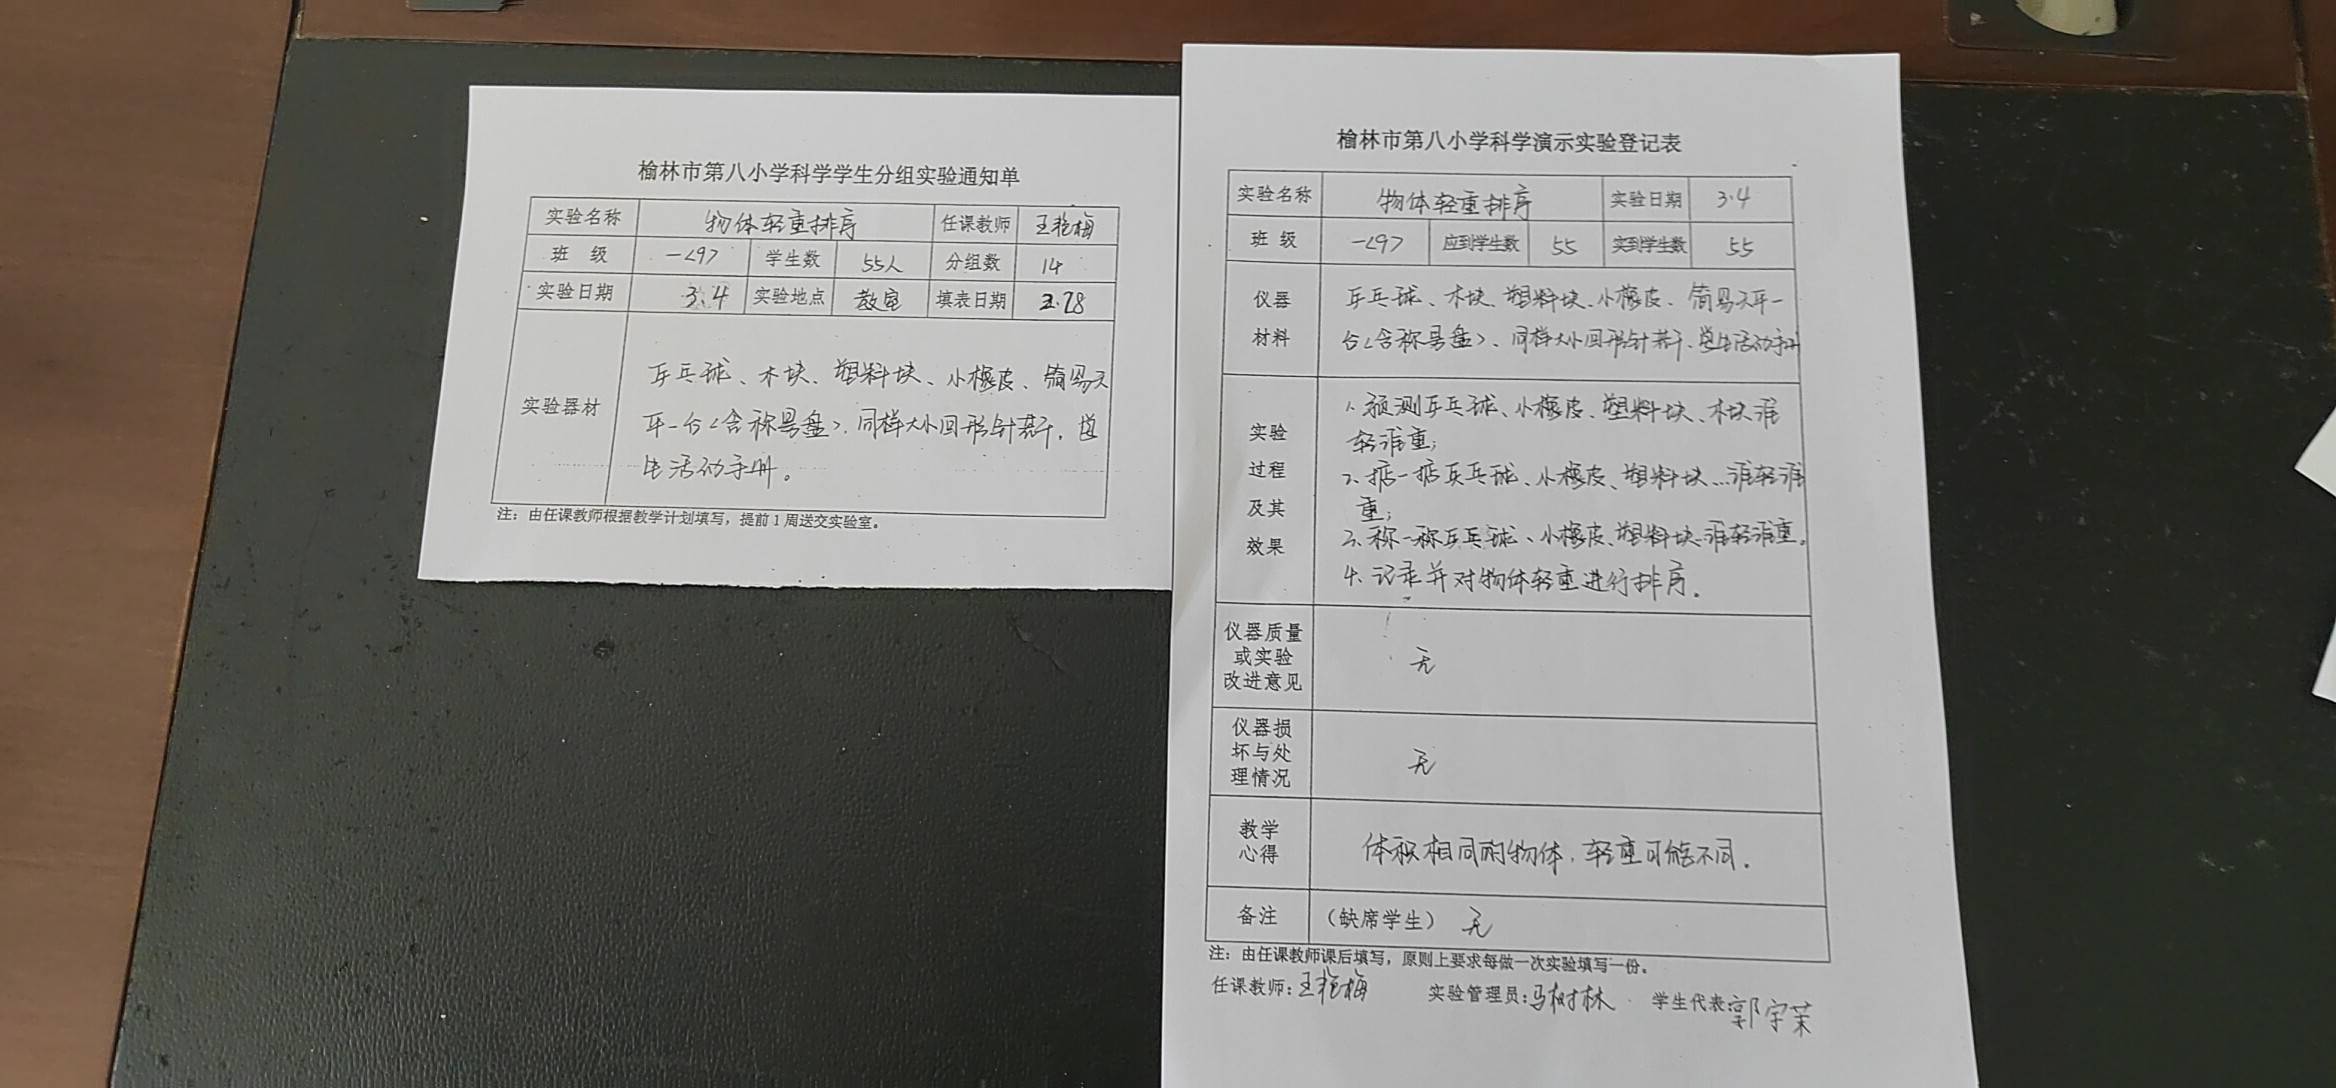 榆林市第八小学科学学生分组实验通知单
实验名称 物体轻重排序 任课教师 王艳梅
班 级 一<9> 学生数 55人 分组数 14
实验日期 3.4 实验地点 教室 填表日期 2.28
实验器材
乒乓球、木块、塑料块、小橡皮、简易天
平一台<含称易盘>、同样大小回形针若干,学
生活动手册。
注：由任课教师根据教学计划填写，提前1周送交实验室。
榆林市第八小学科学演示实验登记表
实验名称 物体轻重排序 实验日期 3.4
班 级 一<9> 应到学生数 55 实到学生数 55
仪器
材料
乒乓球、木块、塑料块、小橡皮、简易天平一
台<含称易盘>、同样大小回形针若干、学生活动手册
实验
过程
及其
效果
1、预测乒乓球、小橡皮、塑料块、木块谁
轻谁重;
2、掂一掂乒乓球、小橡皮、塑料块...谁轻谁
重;
3、称一称乒乓球、小橡皮、塑料块...谁轻谁重。
4、记录并对物体轻重进行排序.
仪器质量
或实验
改进意见
无
仪器损
坏与处
理情况
无
教学
心得
体积相同的物体,轻重可能不同.
备注 （缺席学生） 无
注：由任课教师课后填写，原则上要求每做一次实验填写一份。
任课教师：王艳梅 实验管理员：马树林 学生代表：郭宇茉